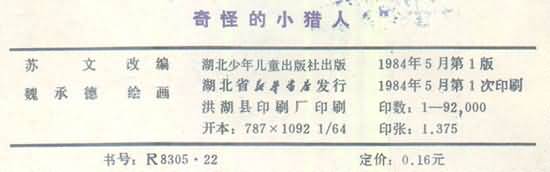 奇怪的小猎人
苏文改编 湖北少年儿童出版社出版 1984年5月第1版
魏承德 绘画 湖北省新华书店发行 1984年5月第1次印刷
洪湖县印刷厂印刷 印数：1—92,000
开本：787×1092 1/64 印张：1.375
书号：R8305·22 定价：0.16元